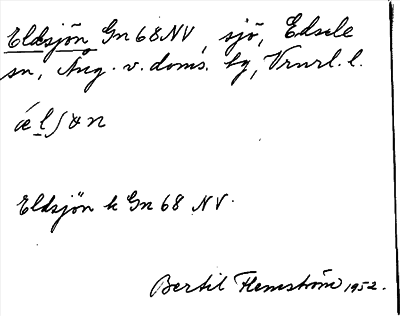 Eldsjön Gn 68 NV, sjö, Edsele
sn, Ång. v. doms. lg, Vrnrl. l.
æl∫ɷn
Eldsjön k Gn 68 NV.
Bertil Flemström 1952.